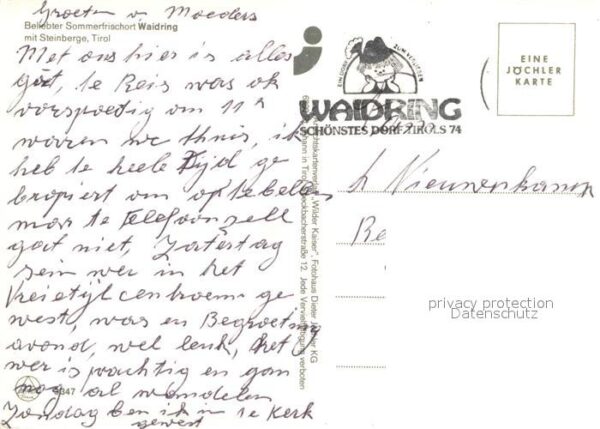 Groeten v. Moeders
Beliebter Sommerfrischort Waidring
mit Steinberge, Tirol
Met ons hier is alles
god, te Reis was ok
vorspoedig om 11 h
waren we thuis, ik
heb te heele Tyd ge
bropiert om op te bellen
mar te Telefoon zell
gat niet, Zatertag
sein wer in het
Vreietijlcentroem ge
west, was en Begroeting
avond, wel leuk, het
wer is prachtig en gan
nog al wandelen
Zondag ben ik in te Kerk
gewest
EIN DORF
ZUM VERLIEBEN
WAIDRING
SCHÖNSTES DORF TIROLS 74
EINE
JÖCHLER
KARTE
Nieuwenkamp
Be
"Wilder Kaiser", Fotohaus Dieter KG
in Tirol, 12. Jede verboten
347
privacy protection
Datenschutz